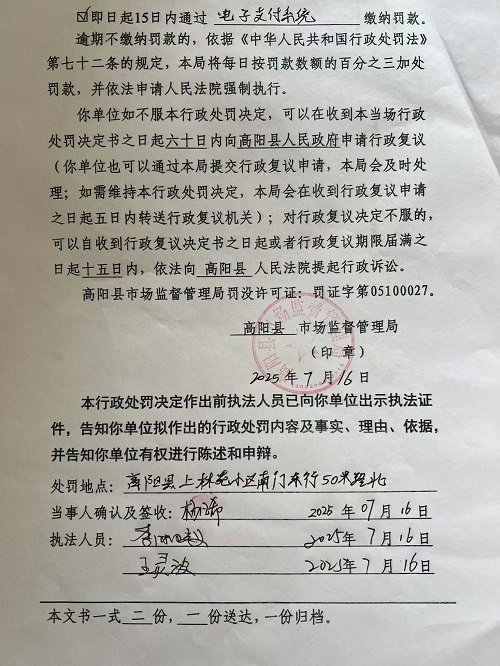 ☑即日起15日内通过 电子支付系统 缴纳罚款。
逾期不缴纳罚款的，依据《中华人民共和国行政处罚法》
第七十二条的规定，本局将每日按罚款数额的百分之三加处
罚款，并依法申请人民法院强制执行。
你单位如不服本行政处罚决定，可以在收到本当场行政
处罚决定书之日起六十日内向高阳县人民政府申请行政复议
（你单位也可以通过本局提交行政复议申请，本局会及时处
理；如需维持本行政处罚决定，本局会在收到行政复议申请
之日起五日内转送行政复议机关）；对行政复议决定不服的，
可以自收到行政复议决定书之日起或者行政复议期限届满之
日起十五日内，依法向 高阳县 人民法院提起行政诉讼。
高阳县市场监督管理局罚没许可证：罚证字第05100027。
高阳县 市场监督管理局
（印 章）
2025 年 7 月 16 日
本行政处罚决定作出前执法人员已向你单位出示执法证
件，告知你单位拟作出的行政处罚内容及事实、理由、依据，
并告知你单位有权进行陈述和申辩。
处罚地点：高阳县上林苑小区南门东行50米路北
当事人确认及签收： 2025 年 07 月 16 日
执法人员： 2025 年 7 月 16 日
2025 年 7 月 16 日
本文书一式 二 份， 一 份送达，一份归档。